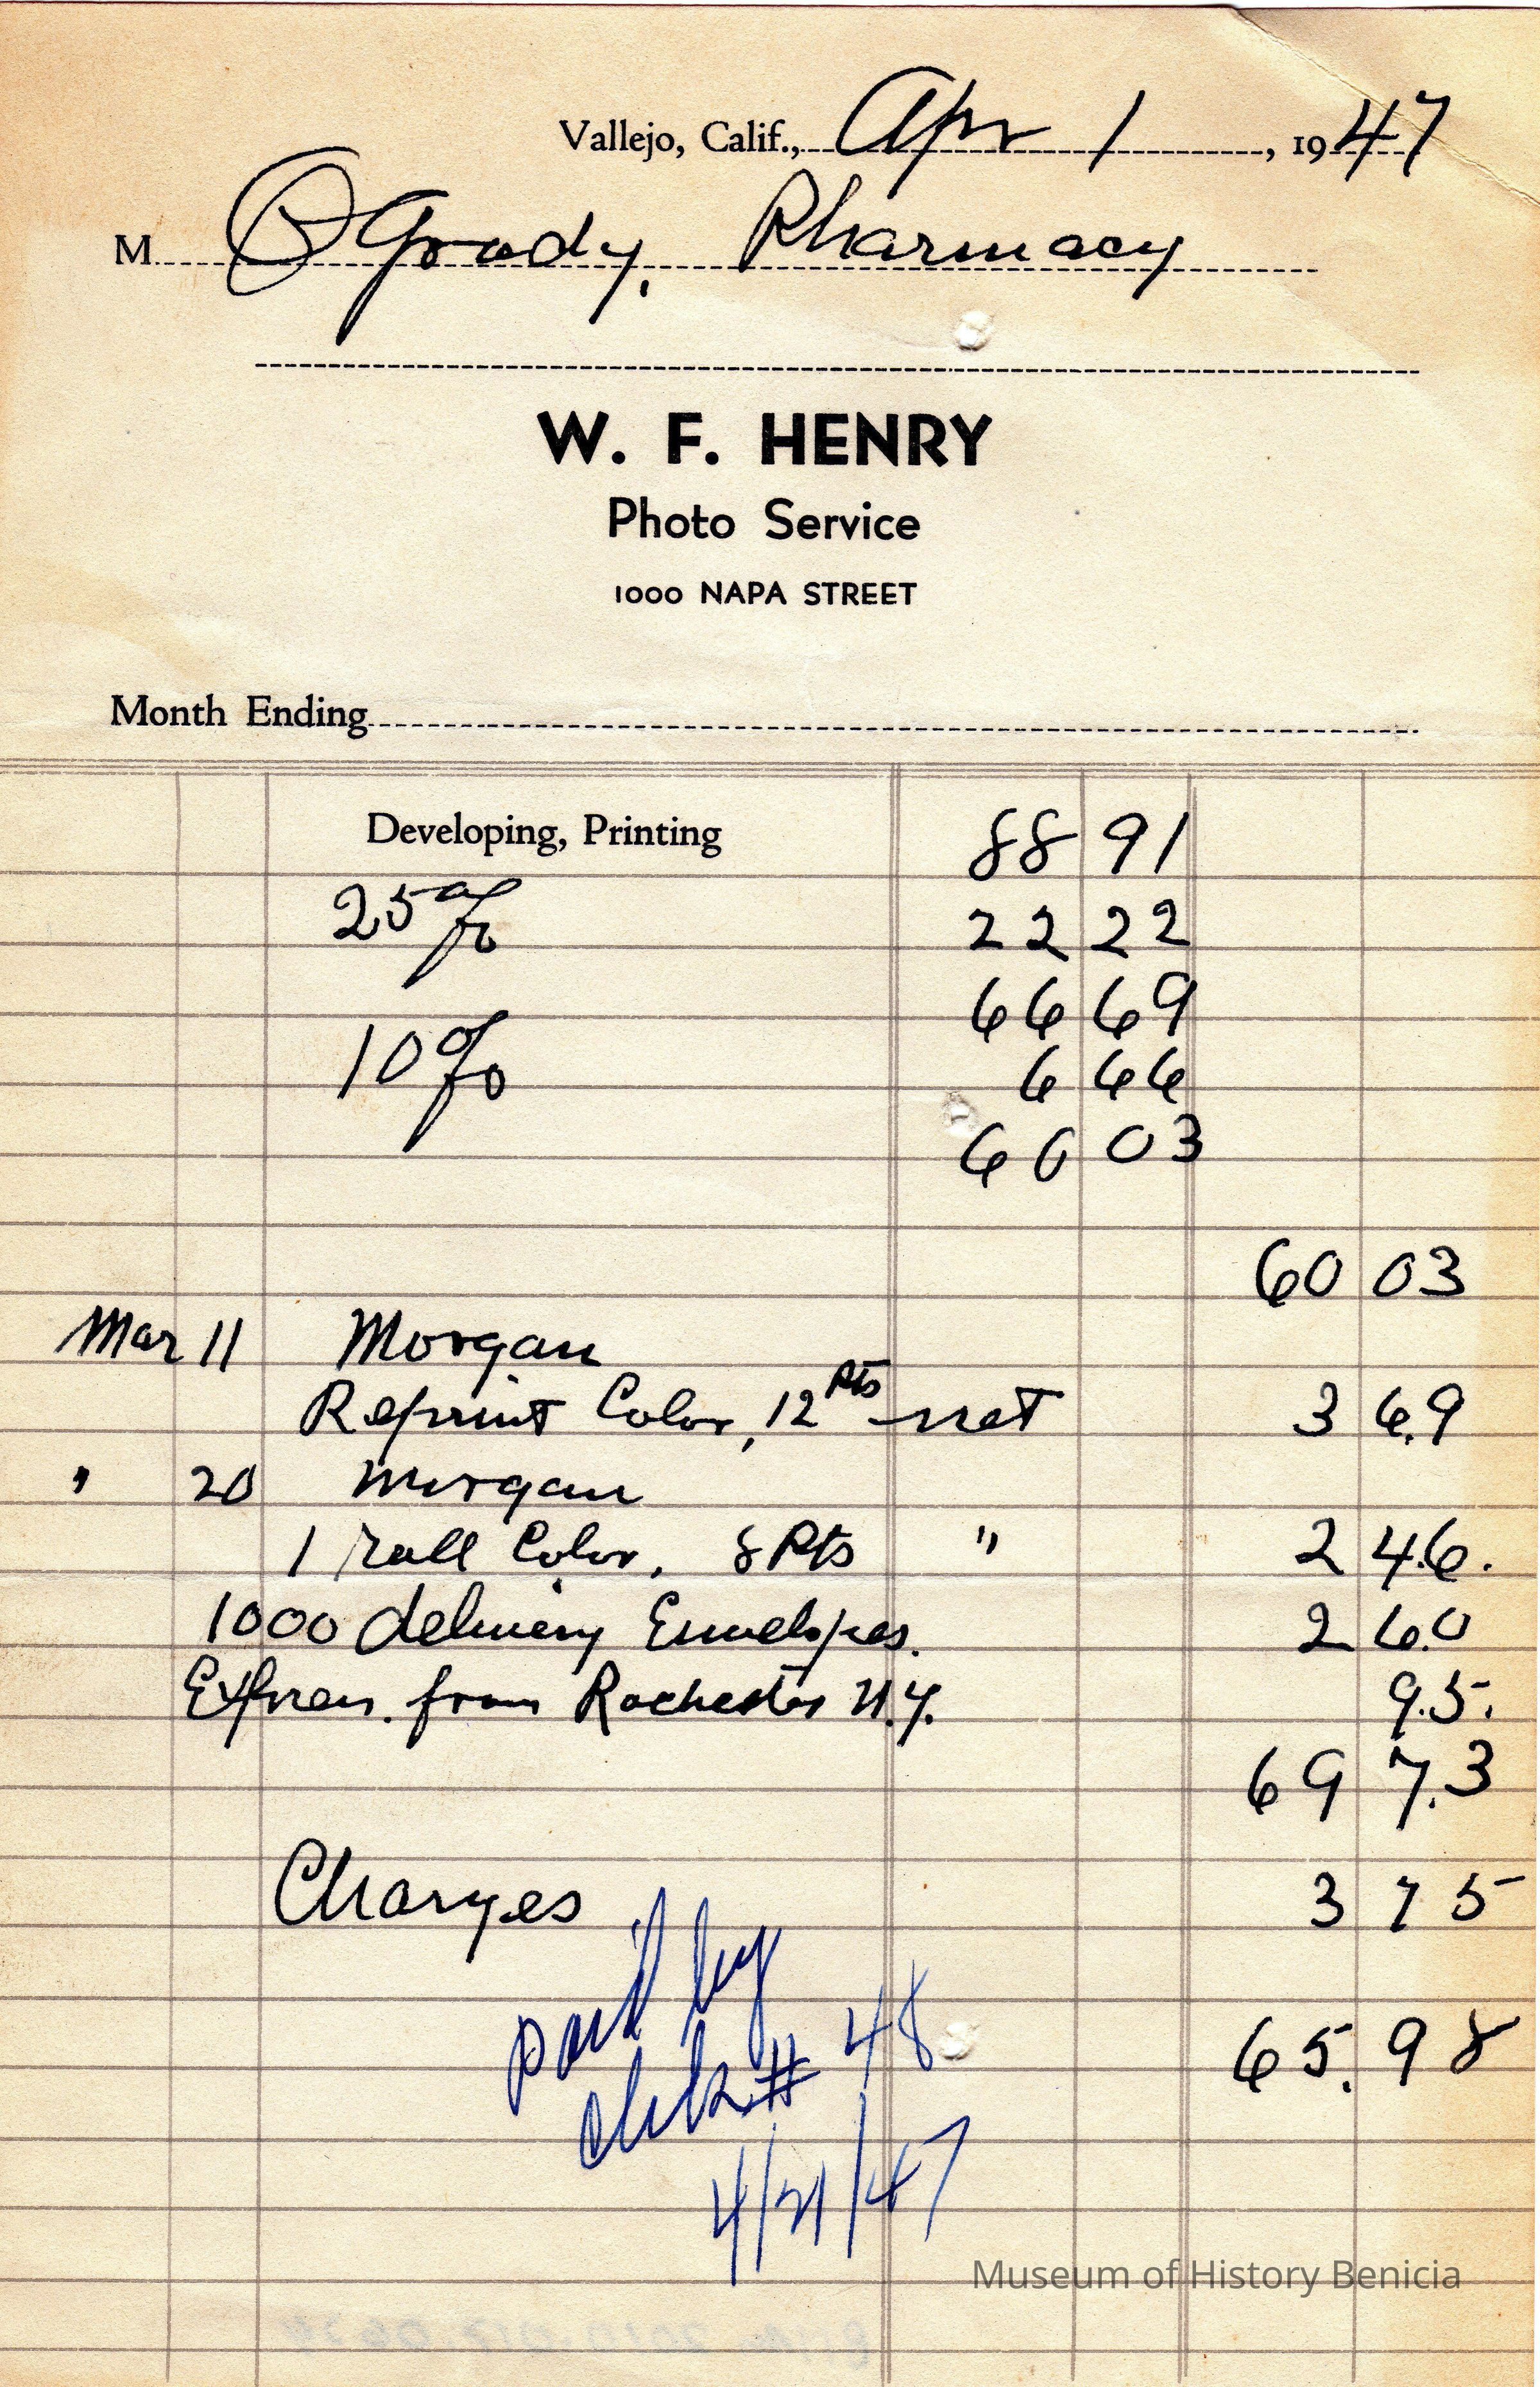 Vallejo, Calif., Apr 1, 1947
M. O'Grady, Pharmacy
W. F. HENRY
Photo Service
1000 NAPA STREET
Month Ending
Developing, Printing 88 91
25% 22 22
66 69
10% 6 66
60 03
60 03
Mar 11 Morgan
Reprint Color, 12 Pts net 3 69
" 20 Morgan
1 roll Color, 8 Pts " 2 46.
1000 delivery Envelopes. 2 60
Express. from Rochester N.Y. 95.
69 73
Charges 3 75
65. 98
paid by
chk # 48
4/21/47
Museum of History Benicia